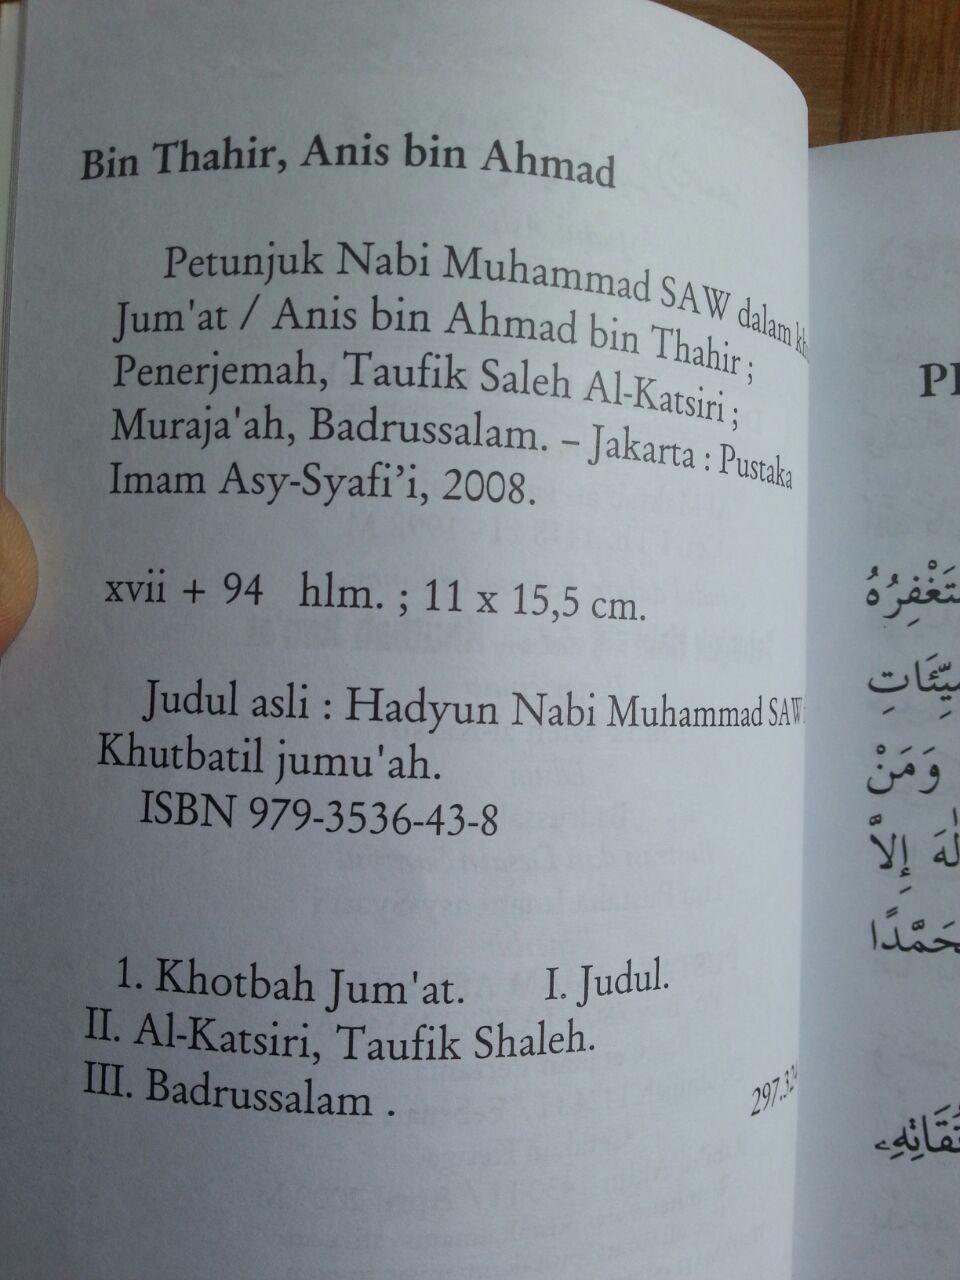 Bin Thahir, Anis bin Ahmad
Petunjuk Nabi Muhammad SAW dalam
Jum'at / Anis bin Ahmad bin Thahir ;
Penerjemah, Taufik Saleh Al-Katsiri ;
Muraja'ah, Badrussalam. – Jakarta : Pustaka
Imam Asy-Syafi'i, 2008.
xvii + 94 hlm. ; 11 x 15,5 cm.
Judul asli : Hadyun Nabi Muhammad SAW
Khutbatil jumu'ah.
ISBN 979-3536-43-8
1. Khotbah Jum'at. I. Judul.
II. Al-Katsiri, Taufik Shaleh.
III. Badrussalam .
وَمَنْ
إِلاَّ